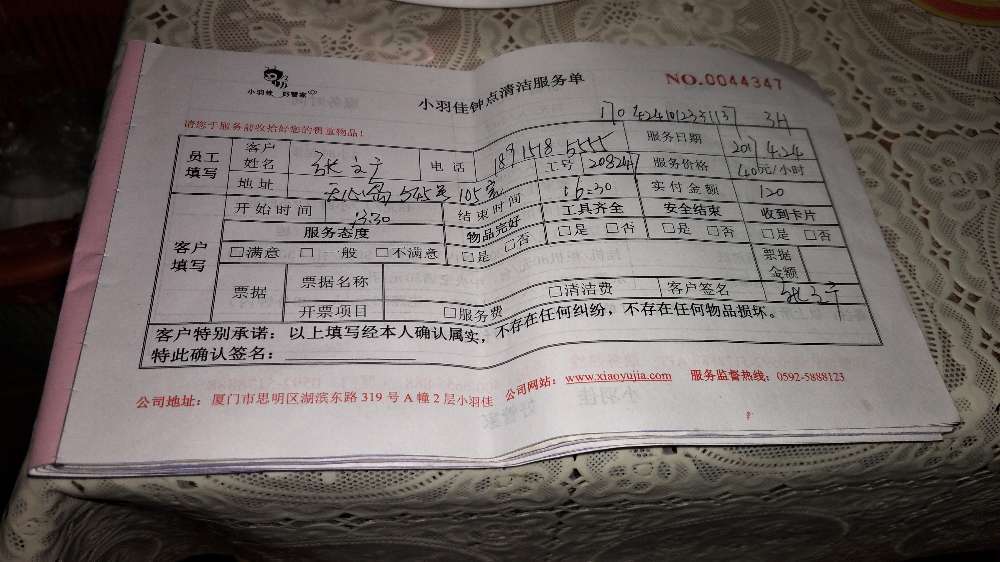 小羽佳 好管家
小羽佳钟点清洁服务单
NO.0044347
请您于服务前收拾好您的贵重物品!
3H
员工填写 客户姓名 电话 189 1518 5555 服务日期 4.24
地址 545 105室 工号 服务价格 40元/小时
开始时间 13:30 结束时间 16:30 实付金额 120
客户填写 服务态度 物品完好 工具齐全 安全结束 收到卡片
□满意 □一般 □不满意 □是 □否 □是 □否 □是 □否 □是 □否
票据 票据名称 票据金额
开票项目 □服务费 □清洁费 客户签名
客户特别承诺：以上填写经本人确认属实，不存在任何纠纷，不存在任何物品损坏。
特此确认签名：
公司地址：厦门市思明区湖滨东路 319 号 A 幢 2 层小羽佳 公司网站：www.xiaoyujia.com 服务监督热线：0592-5888123